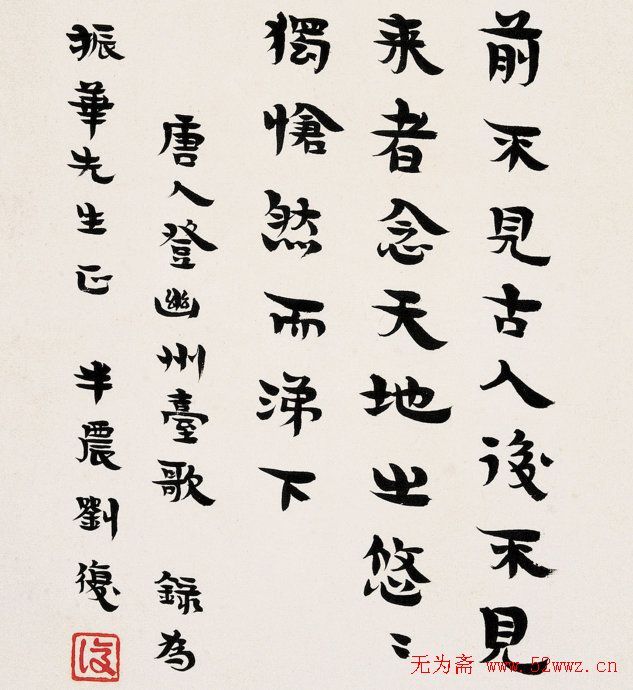 前不見古人後不見
来者念天地之悠〻
獨愴然而涕下
唐人登幽州臺歌 録為
振華先生正 半農劉復
復
无为斋 www.52wwz.cn